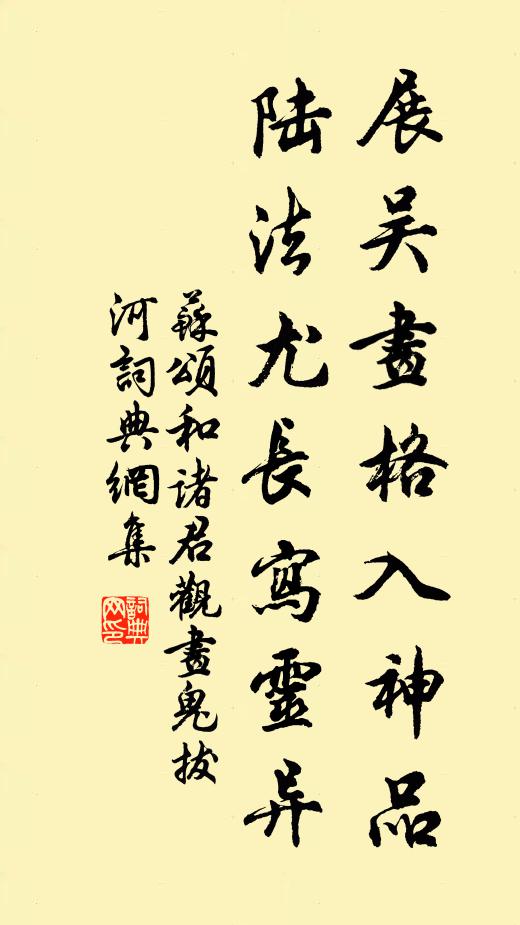 展吴畫格入神品
陆法尤長寫靈异
蘇頌和诸君觀畫鬼拔
河詞典網集
詞典网印